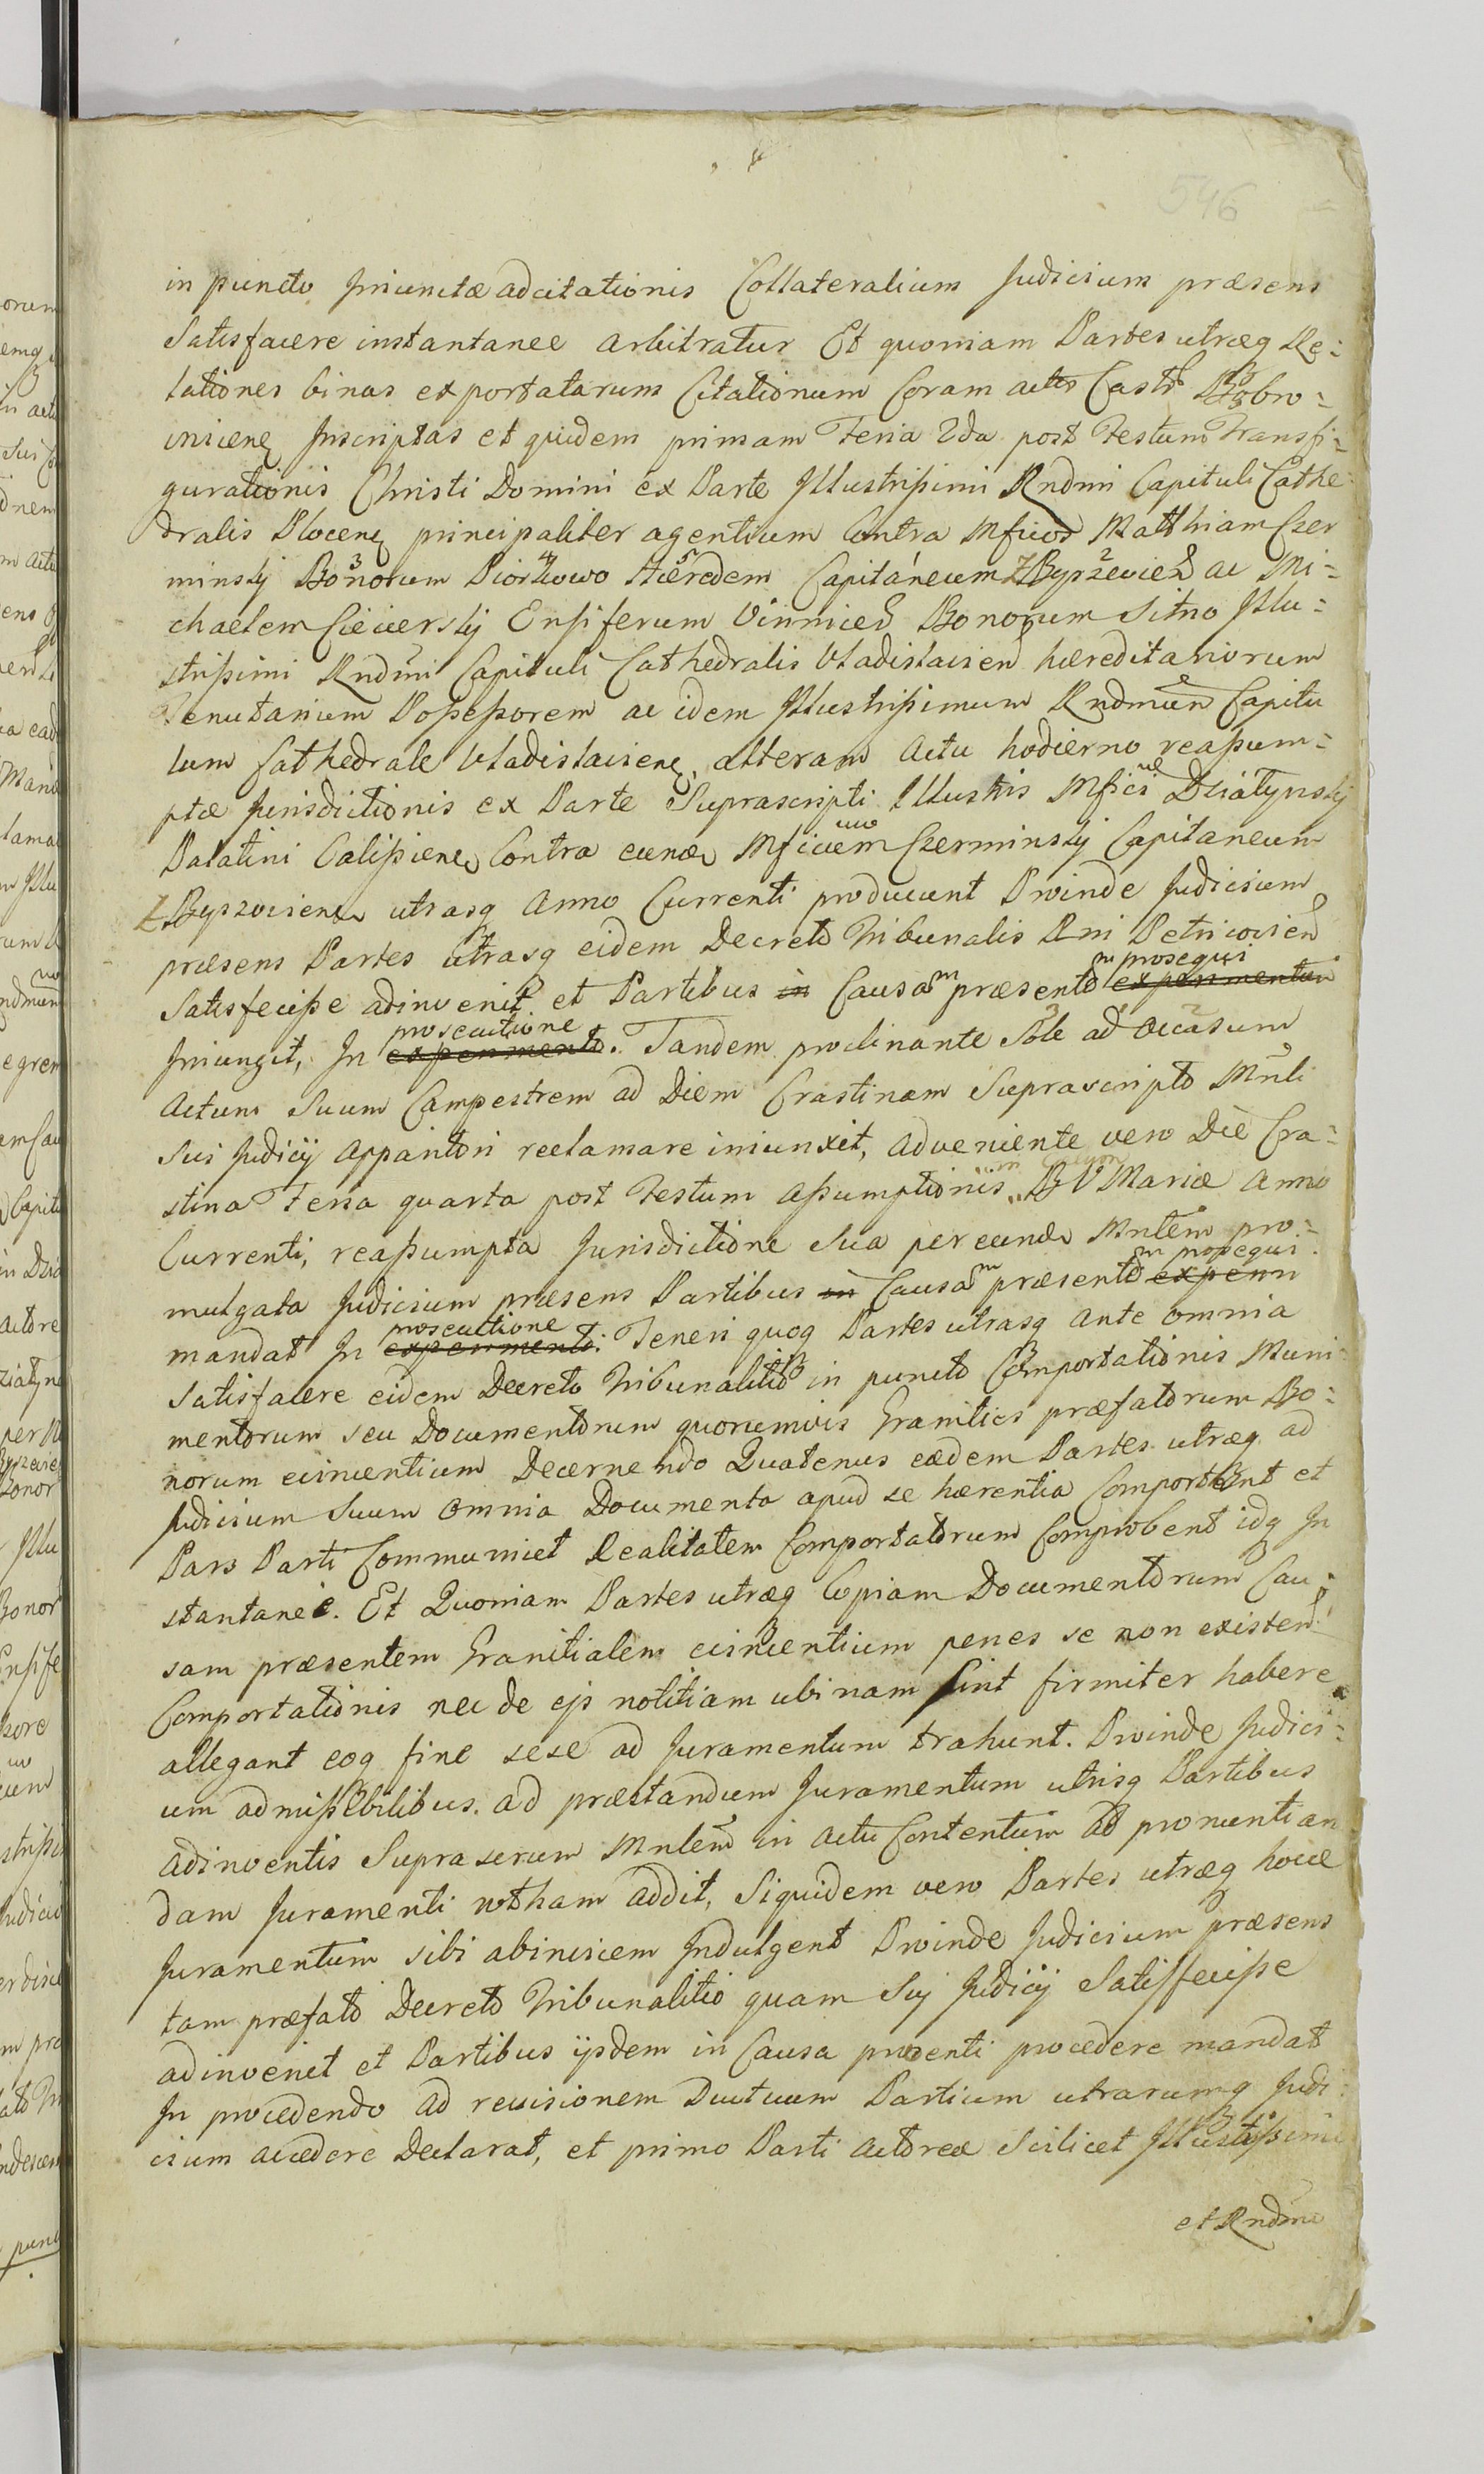 546
in puncto Iniunctæ adcitationis Collateralium Judicium præsens
Satisfacere instantanee arbitratur Et quoniam Partes utræq Re=
lationes binas exportatarum Citationum Coram actis Castr Bobro=
vnicenę Inscriptas et quidem primam Feria 2da post Festum Transfi=
gurationis Christi Domini ex Parte Illustrissimi Rndmi Capituli Cathe
dralis Plocenę principaliter agentium Contra Mficos Matthiam Czer
minskÿ Bonorum Hæredem Capitaneum ac Mi=
chaelem CieciersKÿ Ensiferum Bonorum Sitno Illu=
strissimi Rndmi Capituli Cathedralis Vladislavien hæreditariorum
Tenutarium Possessorem ac idem Illustrissimum Rndmum Capitu
lum Cathedrale Vladislavienę alteram Actu hodierno reassum=
ptæ Jurisdictionis ex Parte Suprascripti Illustris Mfici Dziatynskÿ
Palatini Calissienę Contra eundę Mficum Czerminskÿ Capitaneum
utrasq Anno Currenti producunt Proinde Judicium
præsens Partes utrasq eidem Decreto Tribunalis Rni Petricovien
prosequi
Satisfecisse adinvenit et Partibus in Causam præsentem experimentum
prosecutione
Iniungit, In experimento. Tandem proclinante Sole ad occasum
Actum Suum Campestrem ad Diem Crastinam Suprascripto Mnli
Sui Judicÿ Apparitori reclamare iniunxit, adveniente vero Die Cra=
stina Feria quarta post Festum Assumptionis B V Mariæ Anno
Currenti, reassumpta Jurisdictione Sua per eundę Mnlem pro=
prosequi
mulgata Judicium præsens Partibus in Causam præsentem experiri
prosecutione
mandat In experimento. Teneri quoq Partes utrasq Ante omnia
Satisfacere eidem Decreto Tribunalitio in puncto Comportationis Muni=
mentorum seu Documentorum quorumvis Granities præfatorum Bo=
norum evincentium Decernendo Quatenus eædem Partes utræq ad
Judicium Suum omnia Documenta apud se hærentia Comportent et
Pars Parti Communicet Realitatem Comportatorum Comprobent idq In
stantanee. Et Quoniam Partes utræq Copiam Documentorum Cau=
sam præsentem Granitialem evincentium penes se non existen
Comportationis nec de ejs notitiam ubinam sint firmiter habere
allegant eoq fine sese ad Juramentum trahunt. Proinde Judici=
um admissibilibus ad præstandum Juramentum utrisq Partibus
adinventis Supra serum Mnlem in Actu Contentum ad pronuntian
dam Juramenti rotham addit, Siquidem vero Partes utræq hocce
Juramentum sibi abinvicem Indulgent Proinde Judicium præsens
tam præfato Decreto Tribunalitio quam Suj Judicÿ Satisfecisse
adinvenit et Partibus ÿsdem in Causa præsenti procedere mandat
In procedendo ad revisionem Ductuum Partium utrarumq Judi=
cium accedere Declarat, et primo Parti Actoreæ Scilicet Illustrissimi
et Rndmi